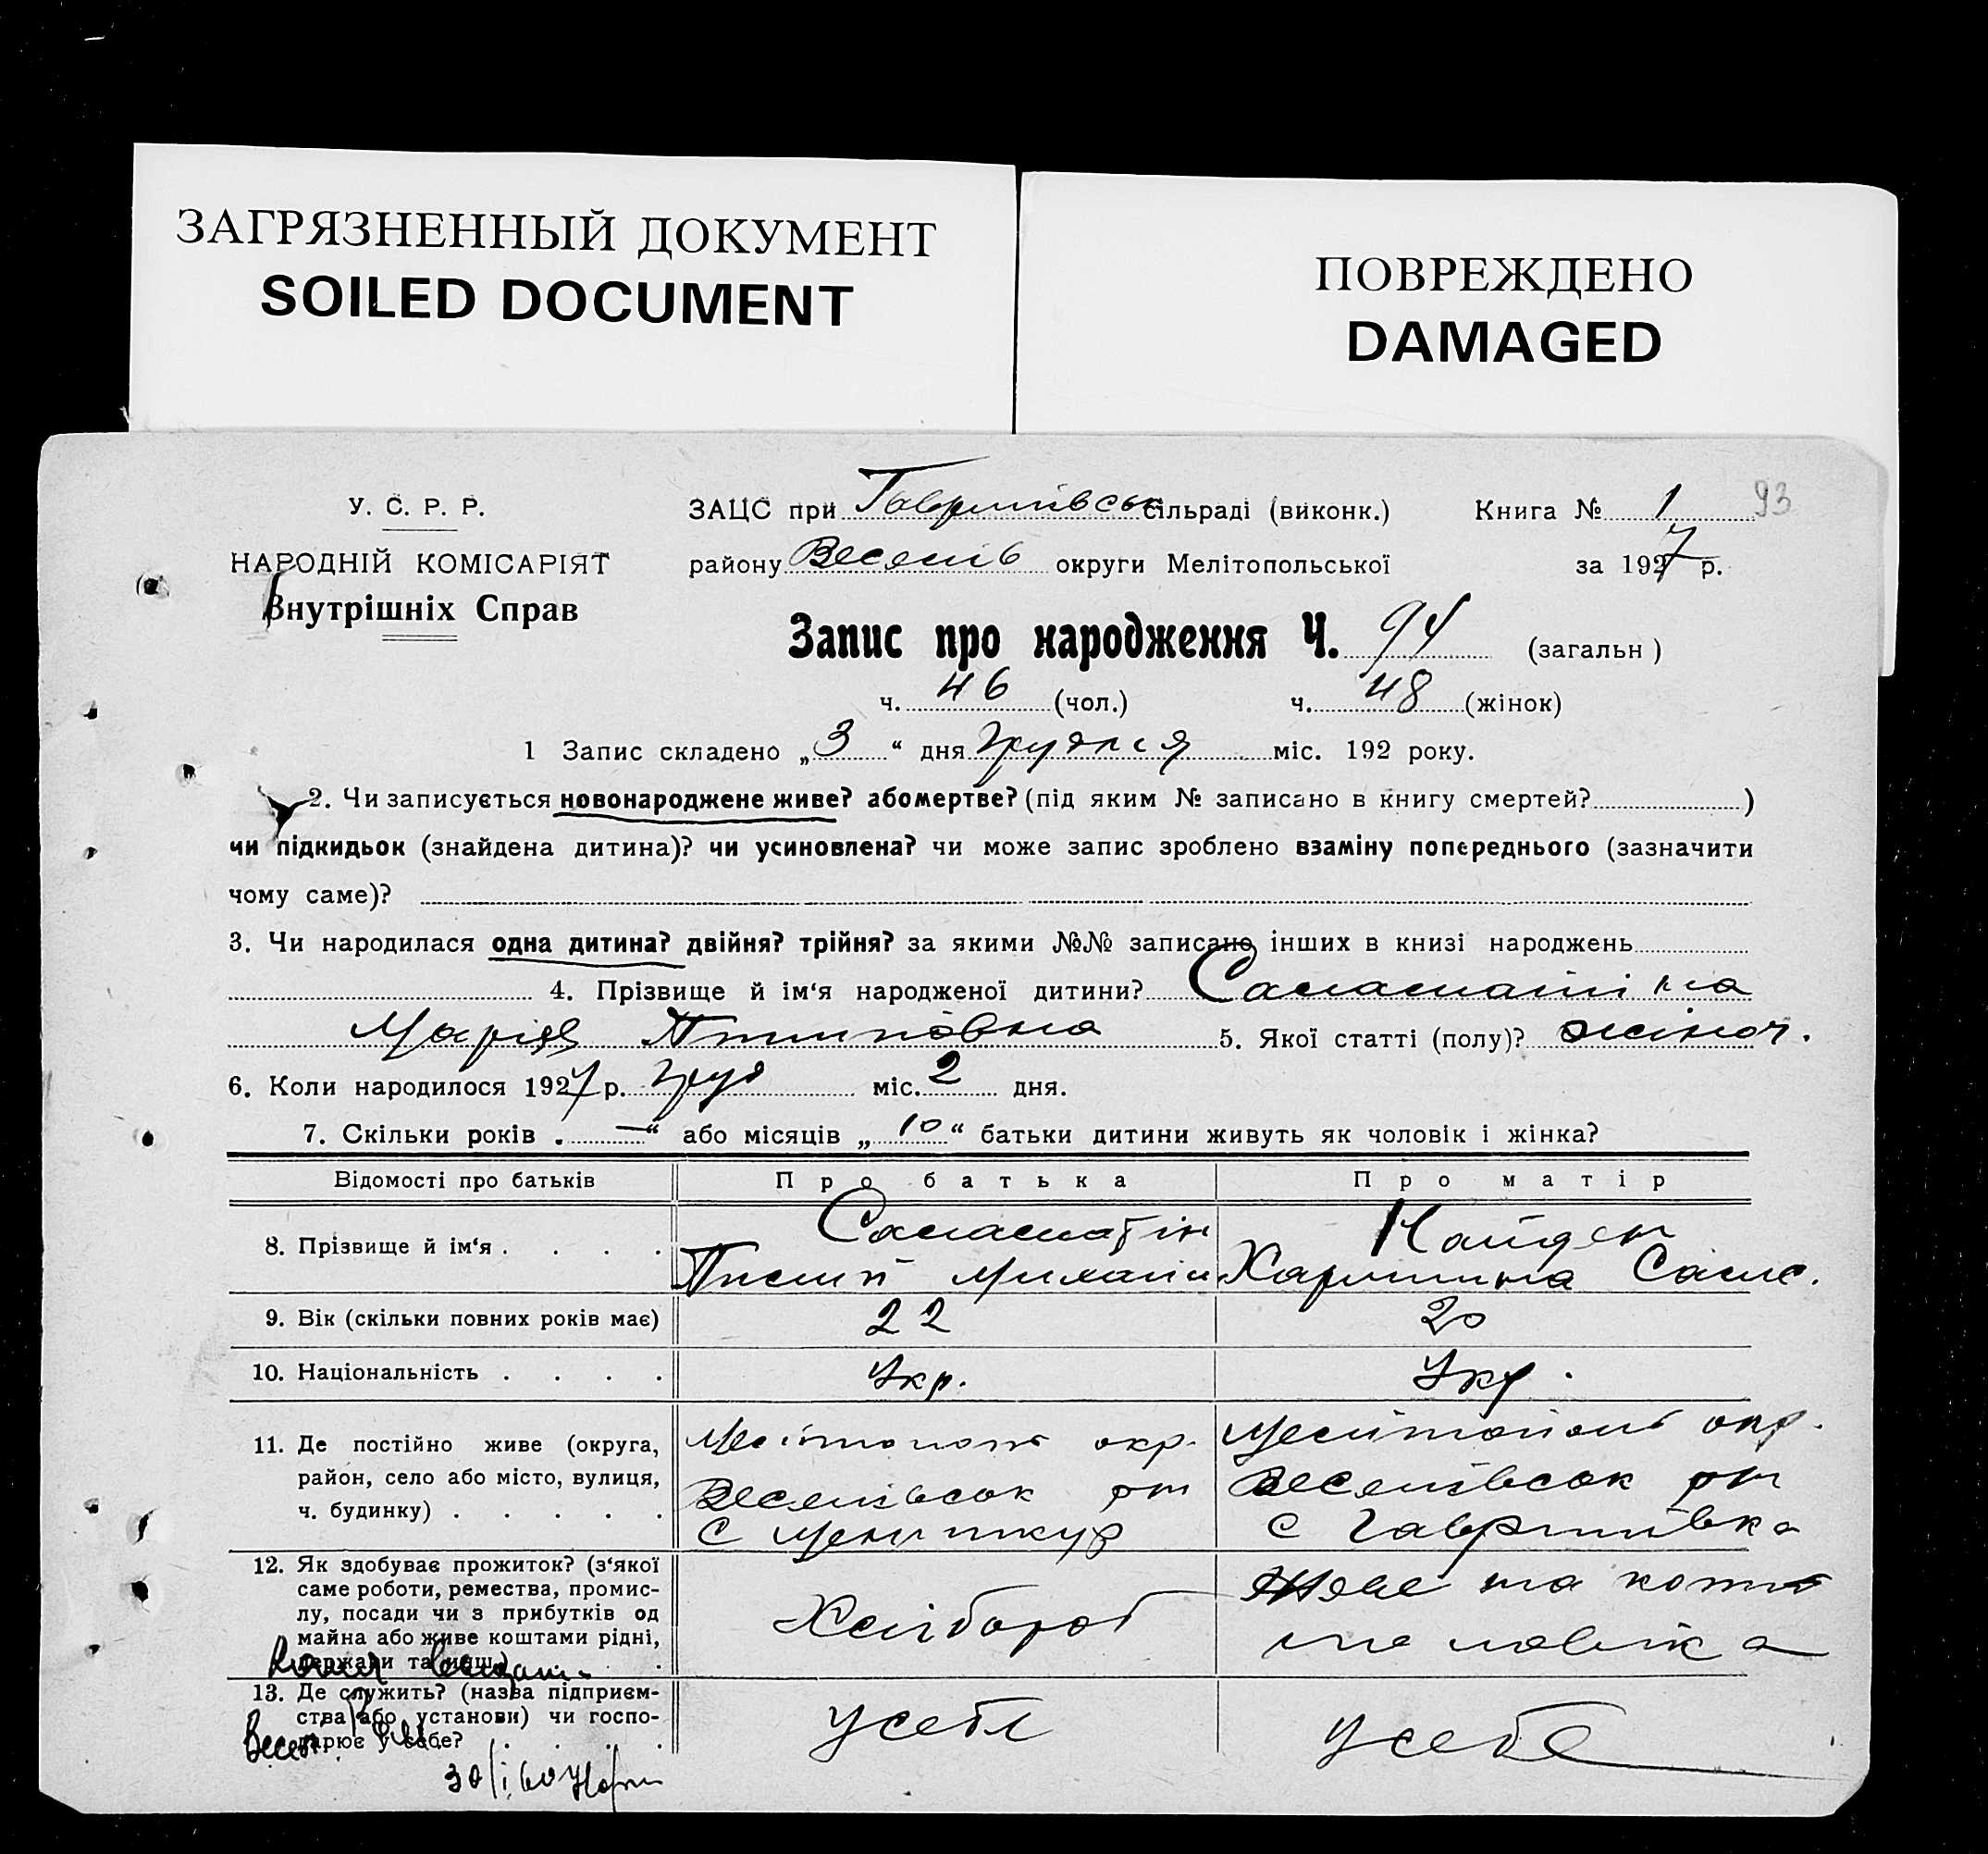 ЗАГРЯЗНЕННЫЙ ДОКУМЕНТ
SOILED DOCUMENT
ПОВРЕЖДЕНО
DAMAGED
У. С. Р. Р.
НАРОДНІЙ КОМІСАРІЯТ
Внутрішніх Справ
ЗАЦС при Гаврилівськ сільраді (виконк.) Книга № 1 93
району Веселів округи Мелітопольської за 1927 р.
Запис про народження Ч. 94 (загальн)
ч. 46 (чол.) ч. 48 (жінок)
1 Запис складено „3“ дня грудня міс. 192 року.
2. Чи записується новонароджене живе? або мертве? (під яким № записано в книгу смертей? )
чи підкидьок (знайдена дитина)? чи усиновлена? чи може запис зроблено взаміну попереднього (зазначити
чому саме)?
3. Чи народилася одна дитина? двійня? трійня? за якими №№ записано інших в книзі народжень
4. Прізвище й ім‘я народженої дитини?
Марія 5. Якої статті (полу)? жіноч.
6. Коли народилося 1927 р. груд міс. 2 дня.
7. Скільки років . —“ або місяців „10“ батьки дитини живуть як чоловік і жінка?
Відомості про батьків Про батька Про матір
8. Прізвище й ім‘я . . . . Найден
9. Вік (скільки повних років має) 22 20
10. Національність . . . . Укр. Укр.
11. Де постійно живе (округа, район, село або місто, вулиця, ч. будинку) . . . . .
окр. Мелітопольс окр.
Веселівськ рн Веселівськ рн
с с Гаврилівка
12. Як здобуває прожиток? (з‘якої
саме роботи, ремества, промис-
лу, посади чи з прибутків од
майна або живе коштами рідні,
держави та инш.) .
Хлібороб
Живе на кошт
чоловіка
13. Де служить? (назва підприєм-
ства або установи) чи госпо-
дарює у себе? . . . .
усебе усебе
30/I 60